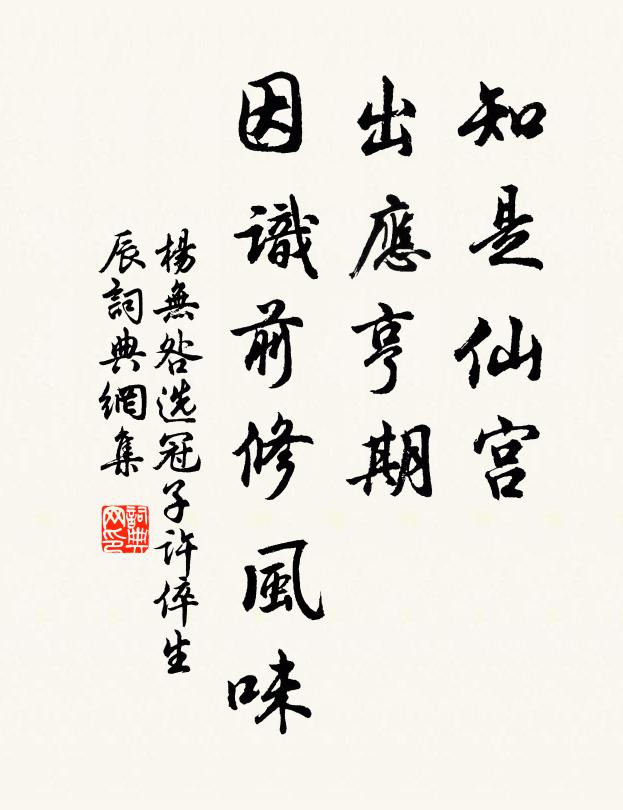 知是仙宫
出應亨期
因識前修風味
楊無咎选冠子許倅生
辰詞典網集
詞典网印